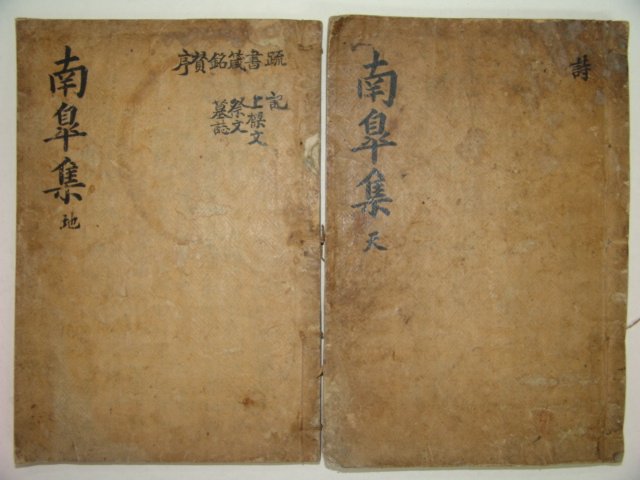 南皐集 天
詩
南皐集 地
疏書箴銘賛序
記
上樑文
祭文
墓誌